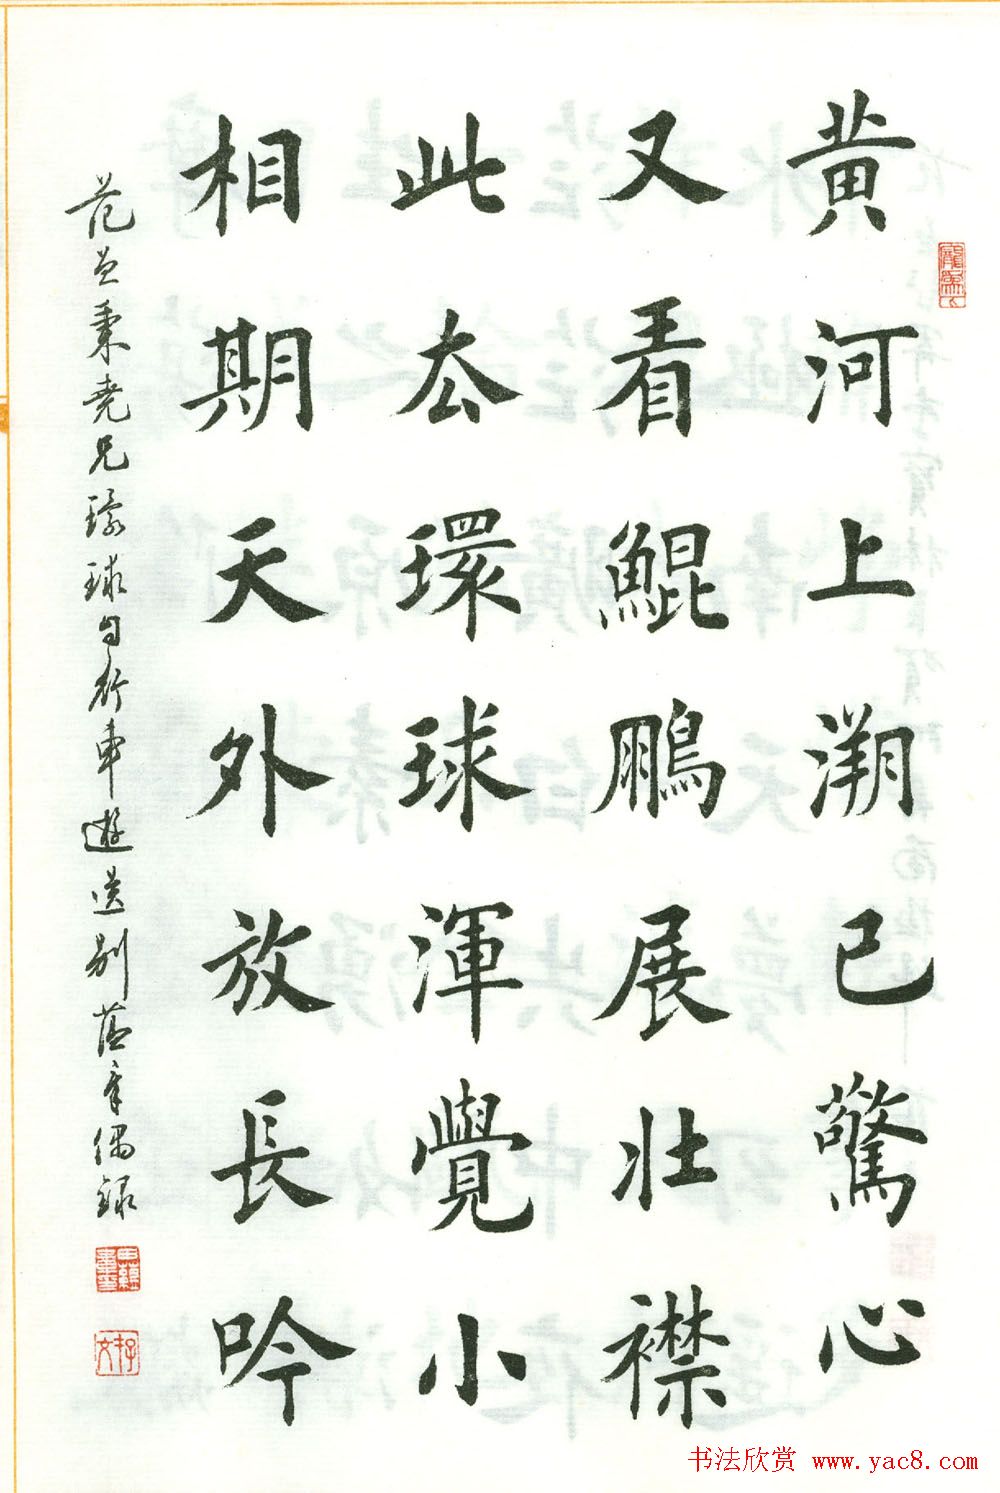 黄河上溯已驚心
又看鯤鵬展壯襟
此厺環球渾覺小
相期天外放長吟
范曾秉堯兄環球自行車遊送別蘊章偶録
书法欣赏 www.yac8.com